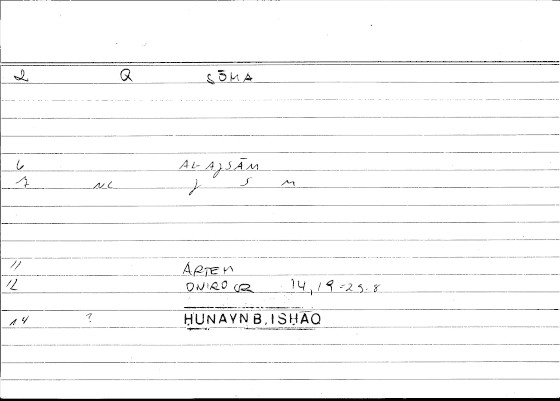 2 Q SŌMA
6 AL-AJSĀM
7 NC J S M
11 ARTEM
12 ONIROCR 14,19=25.8
14 ? HUNAYN B. ISHAQ